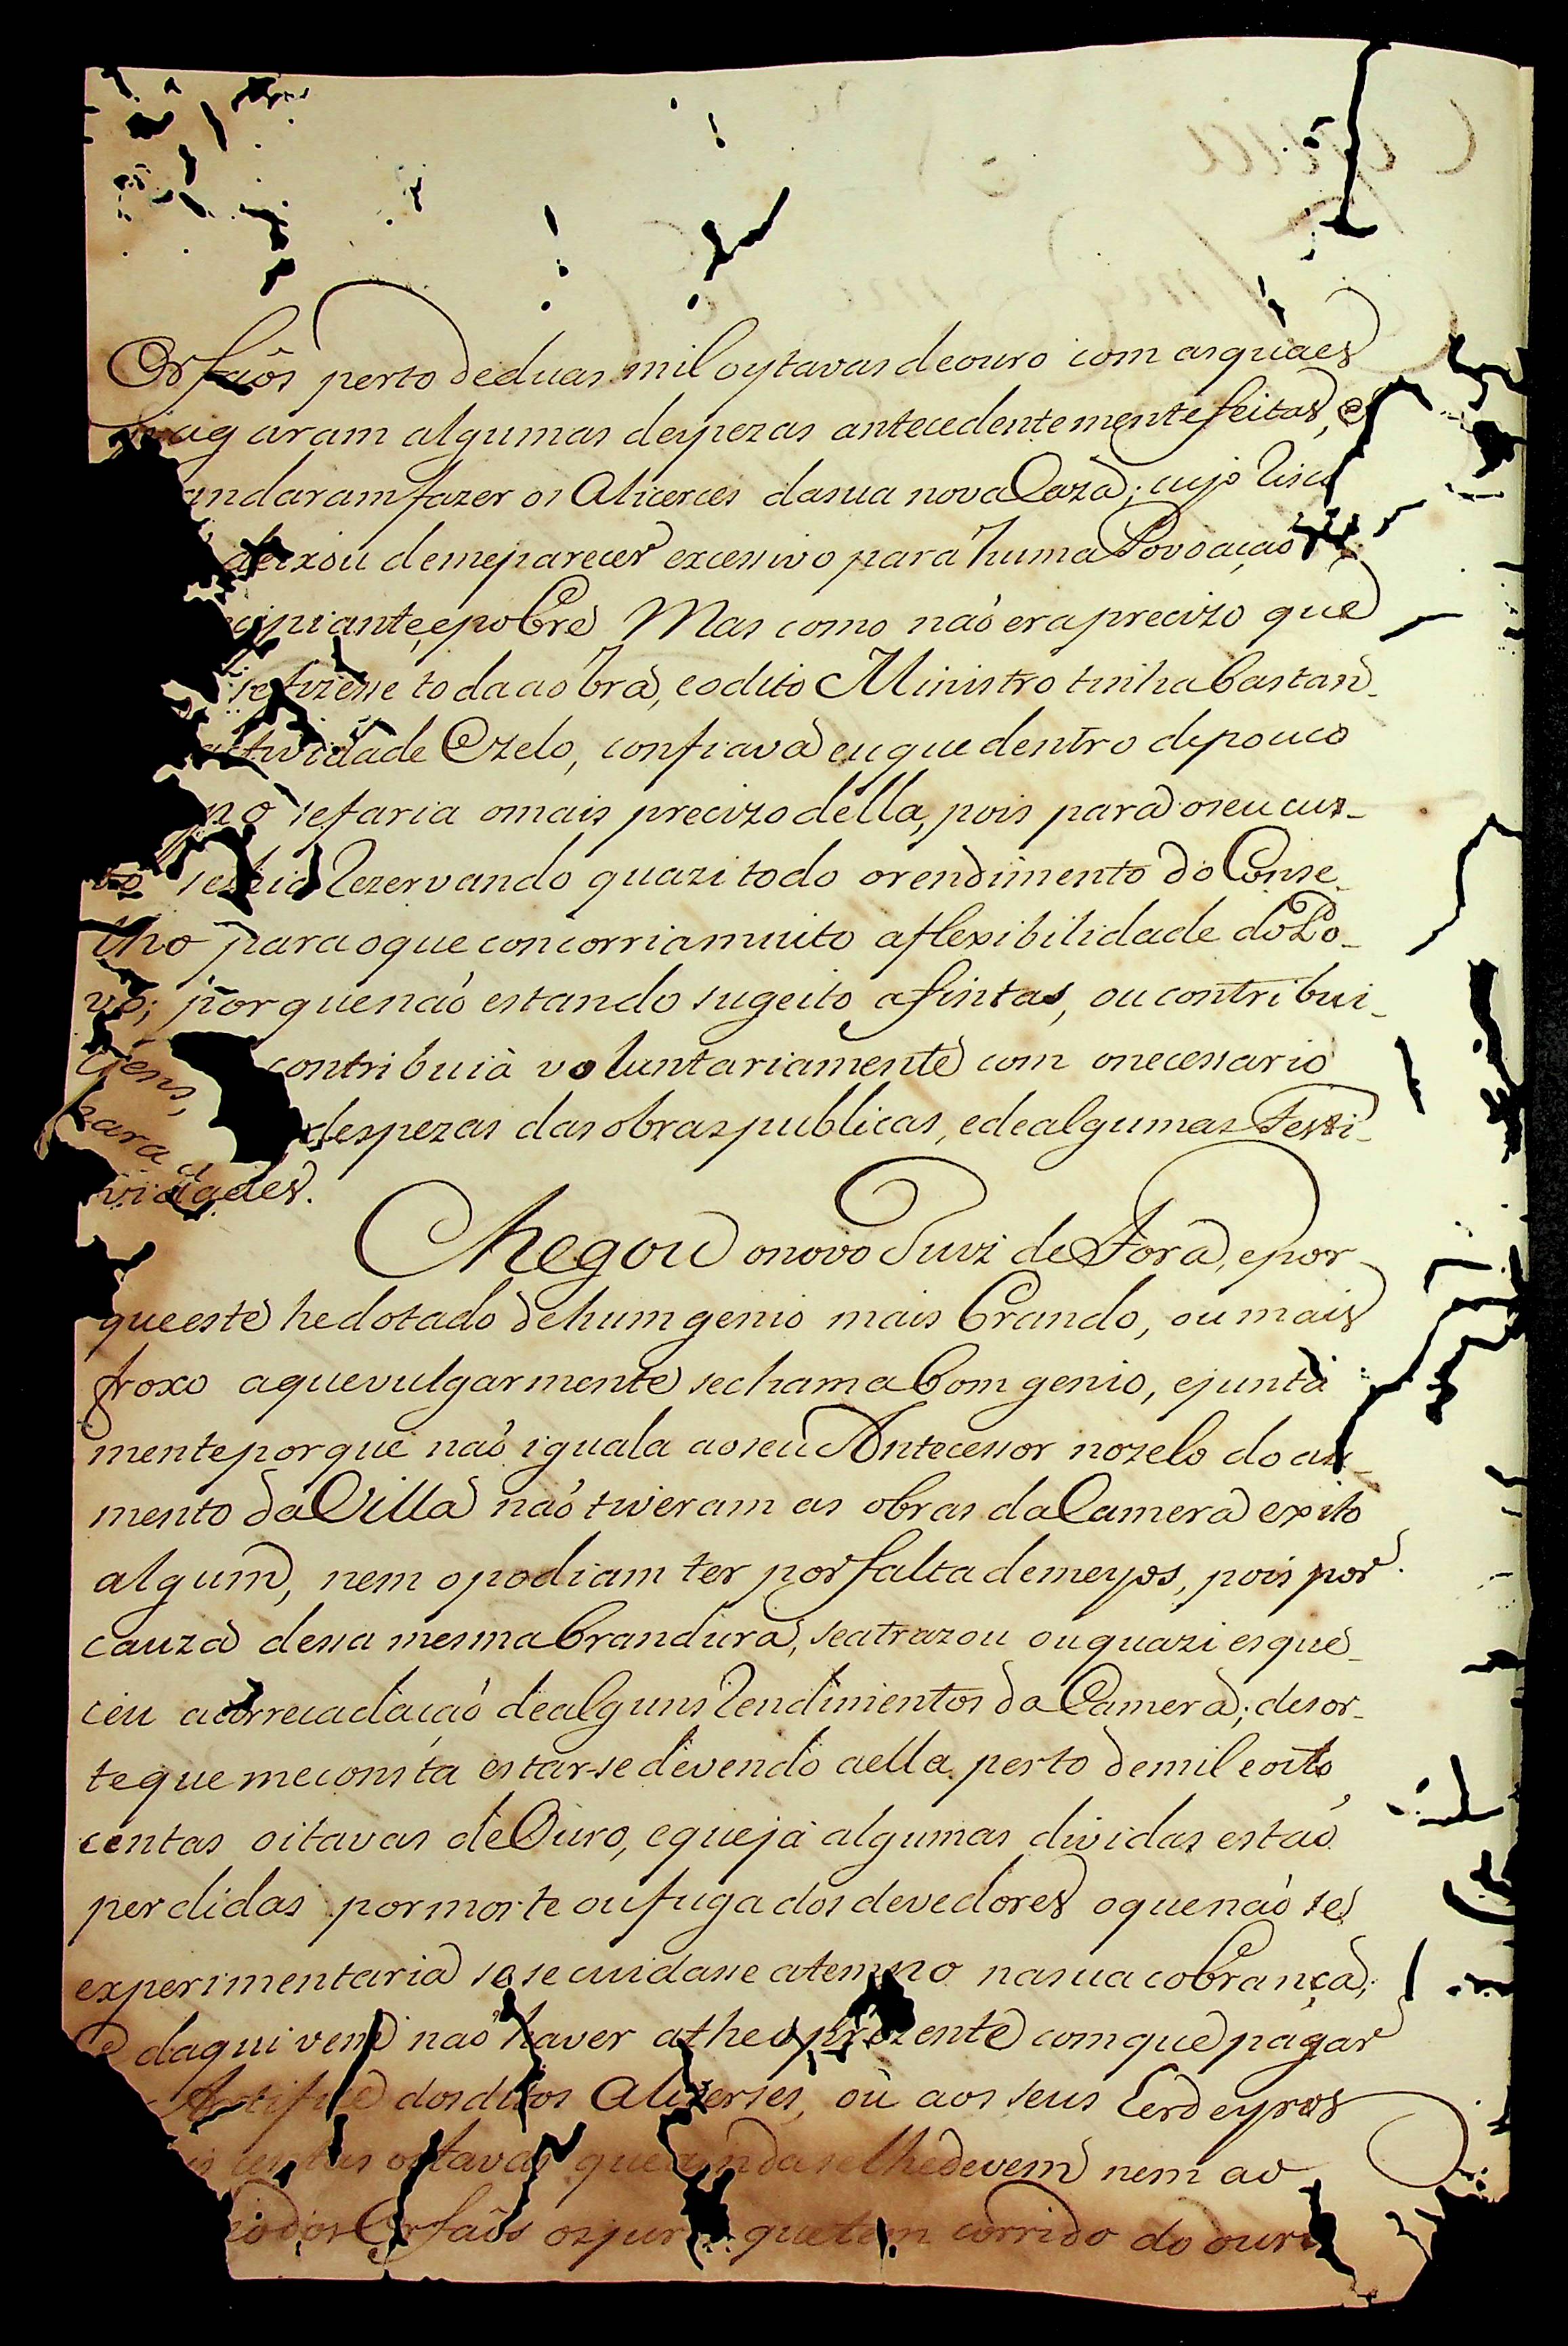 Orfaôs perto de duas mil oytavas de ouro com as quaes
pagaram algumas despezas antecedentemente feitas, e
andaram fazer os Alicerces da sua nova Caza; cujo risco
deixou de me parecer excessivo para huma Povoaçaõ
cipiante, e pobre Mas como naõ era precizo que
se fizesse toda a obra, e o dito Ministro tinha bastan-
actividade e zelo, confiava eu que dentro de pouco
po se faria o mais precizo della, pois para o seu cus-
to se hia rezervando quazi todo o rendimento do Conse-
lho para o que concorria muito a flexibilidade do Po-
vo; porque naõ estando sugeito a fintas, ou contribui-
çiens, contribuia voluntariamente com o necessario
para as despezas das obras publicas, e de algumas Festi-
vidades.
Chegou o novo Juiz de Fora, e por
que este he dotado de hum genio mais brando, ou mais
froxo a que vulgarmente se chama bom genio, e junta
mente porque naõ iguala ao seu Antecessor no zelo do au-
mento da Villa naõ tiveram as obras da Camera exito
algum, nem o podiam ter por falta de meyos, pois por
cauza dessa mesma brandura, se atrazou ou quazi esque-
ceu a arrecadaçaõ de alguns rendimentos da Camera; de sor-
te que me consta estar-se devendo a ella perto de mil e oito
centas oitavas de Ouro, e que já algumas dividas estaõ
perdidas por morte ou fuga dos devedores o que naõ se
experimentaria se se cuidasse a tempo na sua cobrança;
e daqui vem naõ haver athe o prezente com que pagar
Artifice dos ditos Alicerses, ou aos seus Erdeyros
centas oitavas que ainda se lhe devem nem ao
dos Orfaõs os juros que tem corrido do ouro